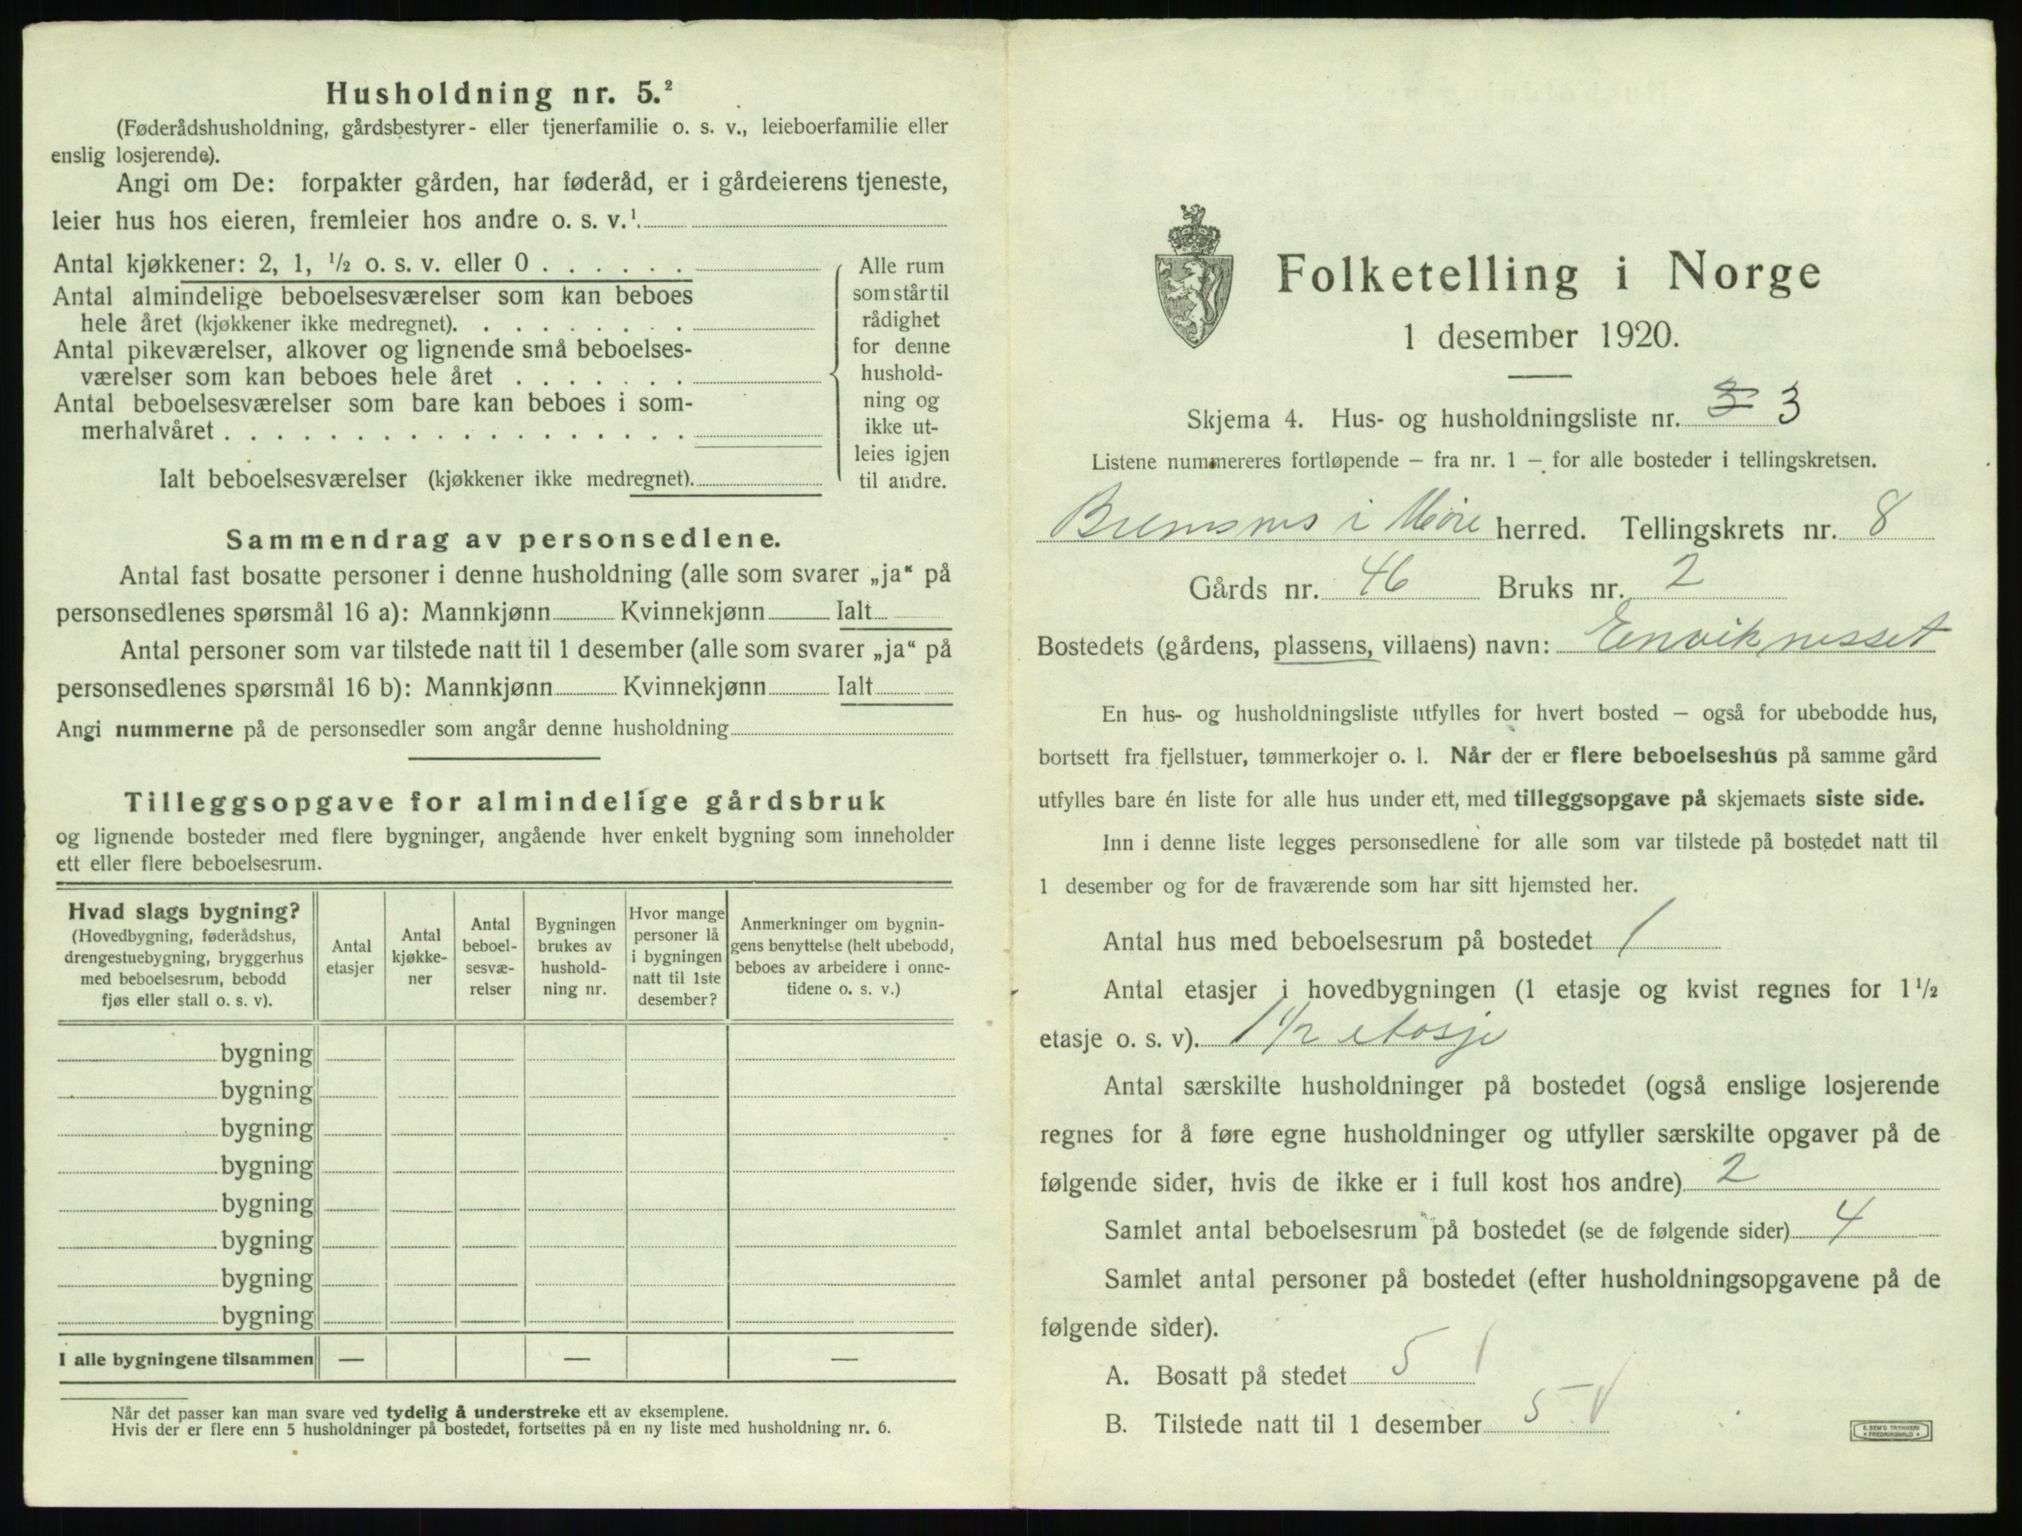 Husholdning nr. 5.²
(Føderådshusholdning, gårdsbestyrer- eller tjenerfamilie o. s. v., leieboerfamilie eller
enslig losjerende).
Angi om De: forpakter gården, har føderåd, er i gårdeierens tjeneste,
leier hus hos eieren, fremleier hos andre o. s. v.¹
Antal kjøkkener: 2, 1, ½ o. s. v. eller 0
Antal almindelige beboelsesværelser som kan beboes
hele året (kjøkkener ikke medregnet)
Antal pikeværelser, alkover og lignende små beboelses-
værelser som kan beboes hele året
Antal beboelsesværelser som bare kan beboes i som-
merhalvåret
Ialt beboelsesværelser (kjøkkener ikke medregnet)
Alle rum
som står til
rådighet
for denne
hushold-
ning og
ikke ut-
leies igjen
til andre.
Sammendrag av personsedlene.
Antal fast bosatte personer i denne husholdning (alle som svarer „ja“ på
personsedlenes spørsmål 16 a): Mannkjønn Kvinnekjønn Ialt
Antal personer som var tilstede natt til 1 desember (alle som svarer „ja“ på
personsedlenes spørsmål 16 b): Mannkjønn Kvinnekjønn Ialt
Angi nummerne på de personsedler som angår denne husholdning
Tilleggsopgave for almindelige gårdsbruk
og lignende bosteder med flere bygninger, angående hver enkelt bygning som inneholder
ett eller flere beboelsesrum.
Hvad slags bygning?
(Hovedbygning, føderådshus,
drengestuebygning, bryggerhus
med beboelsesrum, bebodd
fjøs eller stall o. s. v).
Antal
etasjer
Antal
kjøkke-
ner
Antal
beboel-
sesvæ-
relser
Bygningen
brukes av
hushold-
ning nr.
Hvor mange
personer lå
i bygningen
natt til 1ste
desember?
Anmerkninger om bygnin-
gens benyttelse (helt ubebodd,
beboes av arbeidere i onne-
tidene o. s. v.)
bygning
bygning
bygning
bygning
bygning
bygning
bygning
bygning
I alle bygningene tilsammen — — —
Når det passer kan man svare ved tydelig å understreke ett av eksemplene.
Hvis der er flere enn 5 husholdninger på bostedet, fortsettes på en ny liste med husholdning nr. 6.
Folketelling i Norge
1 desember 1920.
Skjema 4. Hus- og husholdningsliste nr. 3 3
Listene nummereres fortløpende – fra nr. 1 – for alle bosteder i tellingskretsen.
Bremsnes i Møre herred. Tellingskrets nr. 8
Gårds nr. 46 Bruks nr. 2
Bostedets (gårdens, plassens, villaens) navn: Enviknesset
En hus- og husholdningsliste utfylles for hvert bosted – også for ubebodde hus,
bortsett fra fjellstuer, tømmerkojer o. l. Når der er flere beboelseshus på samme gård
utfylles bare én liste for alle hus under ett, med tilleggsopgave på skjemaets siste side.
Inn i denne liste legges personsedlene for alle som var tilstede på bostedet natt til
1 desember og for de fraværende som har sitt hjemsted her.
Antal hus med beboelsesrum på bostedet 1
Antal etasjer i hovedbygningen (1 etasje og kvist regnes for 1½
etasje o. s. v). 1 1/2 etasje
Antal særskilte husholdninger på bostedet (også enslige losjerende
regnes for å føre egne husholdninger og utfyller særskilte opgaver på de
følgende sider, hvis de ikke er i full kost hos andre) 2
Samlet antal beboelsesrum på bostedet (se de følgende sider) 4
Samlet antal personer på bostedet (efter husholdningsopgavene på de
følgende sider).
A. Bosatt på stedet 5
B. Tilstede natt til 1 desember 5
E. SEM'S TRYKKERI
FREDRIKSHALD